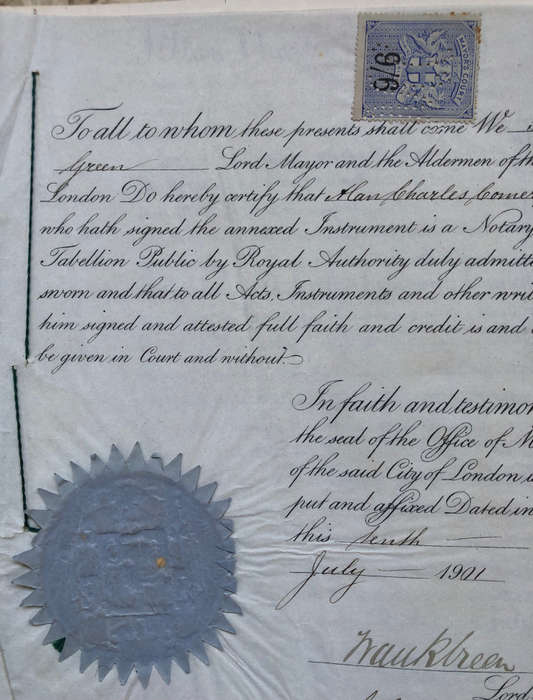 MAYOR'S COURT
9/6
To all to whom these presents shall come We
Green Lord Mayor and the Aldermen of th
London Do hereby certify that Alan Charles Comer
who hath signed the annexed Instrument is a Notary
Tabellion Public by Royal Authority duly admitte
sworn and that to all Acts, Instruments and other writ
him signed and attested full faith and credit is and
be given in Court and without.
In faith and testimon
the seal of the Office of M
of the said City of London
put and affixed Dated in
this tenth
July 1901
Frank Green
Lord